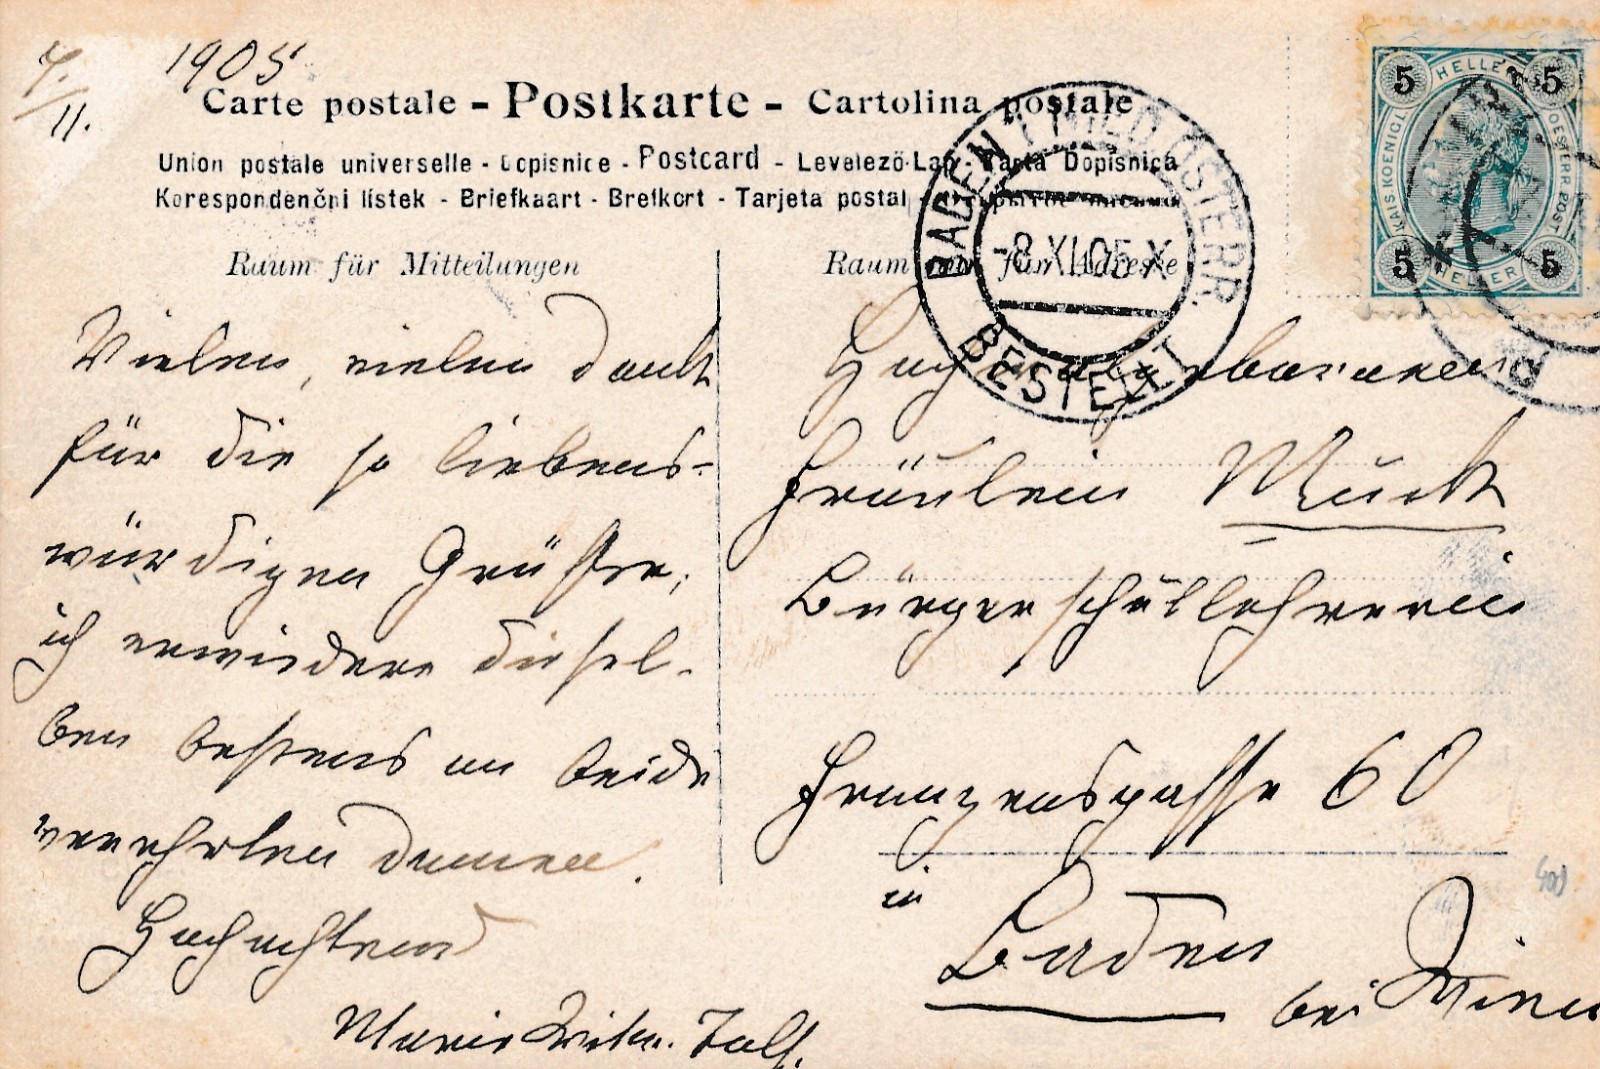 7./11. 1905
Carte postale - Postkarte - Cartolina postale
Union postale universelle - Dopisnice - Postcard - Levelező-Lap - Karta Dopisnica
Korespondenční lístek - Briefkaart - Brefkort - Tarjeta postal
Raum für Mitteilungen
Vielen, vielen Dank
für die so liebens-
würdigen Grüsse,
ich erwiedere diesel-
ben bestens an beide
verehrten Damen.
Hochachtend
Marie
Raum für Adresse
Hochwolgeborenen
Fräulein Muck
Bürgerschullehrerin
Franzensgasse 60
in
Baden
bei Wien
BADEN NIED. ÖSTERR.
-8.XI.05-X
BESTELLT
5 HELLER 5
KAIS. KOENIGL. OESTERR. POST
5 HELLER 5